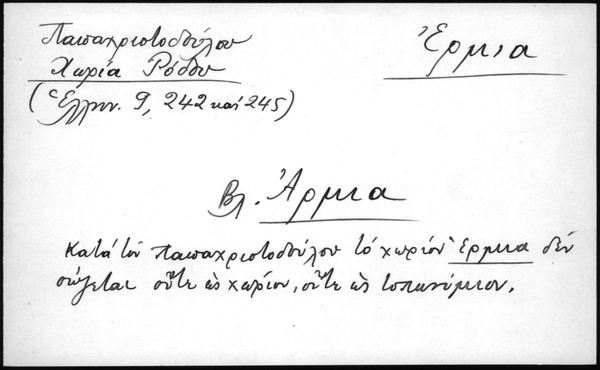 Παπαχριστοδούλου
Χωρία Ρόδου
(Ἑλλην. 9, 242 καί 245)
Ἔρμια
Βλ. Ἄρμια
Κατά τόν Παπαχριστοδούλου τό χωρίον Ἔρμια δέν
σῴζεται οὔτε ὡς χωρίον, οὔτε ὡς τοπωνύμιον.